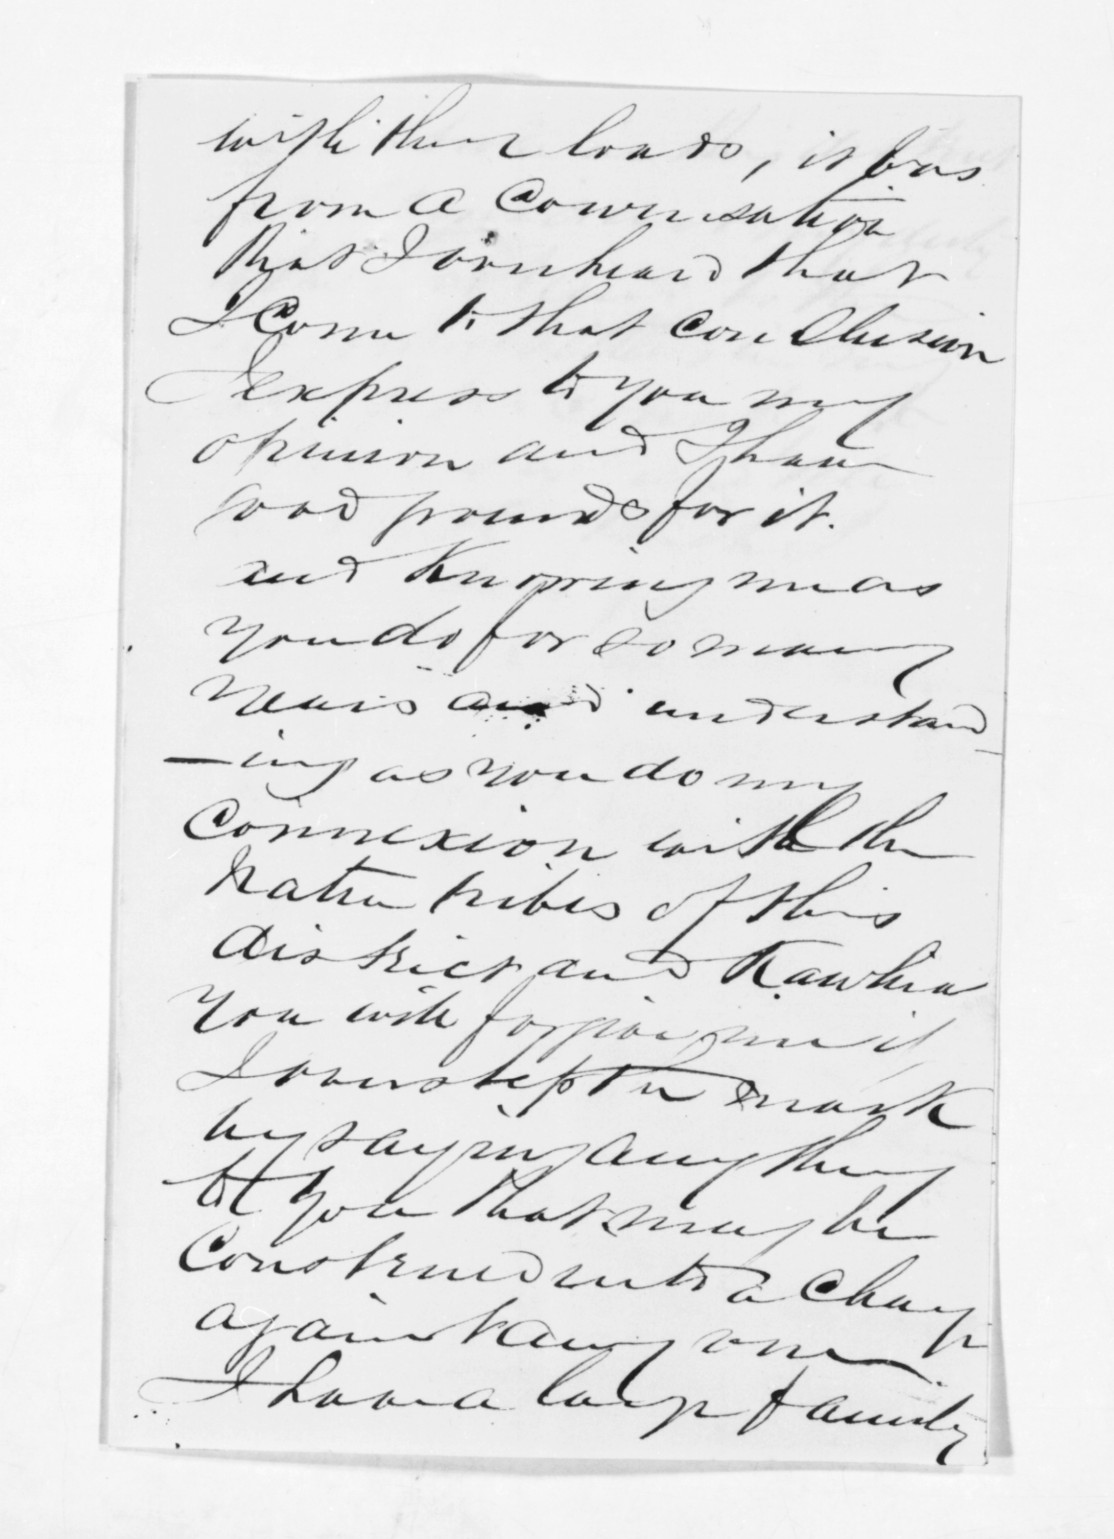 with their loads, it was
from a Conversation
that I overheard that
I Come to that Conclusion
I express to you my
opinion and I have
good grounds for it.
and Knowing me as
you do for so many
years and understand
-ing as you do my
Connexion with the
Native tribes of this
district and Kawhia
You will forgive me if
I overstep the mark
by saying any thing
to you that may be
Construed into a Charge
against any one
I have a large family